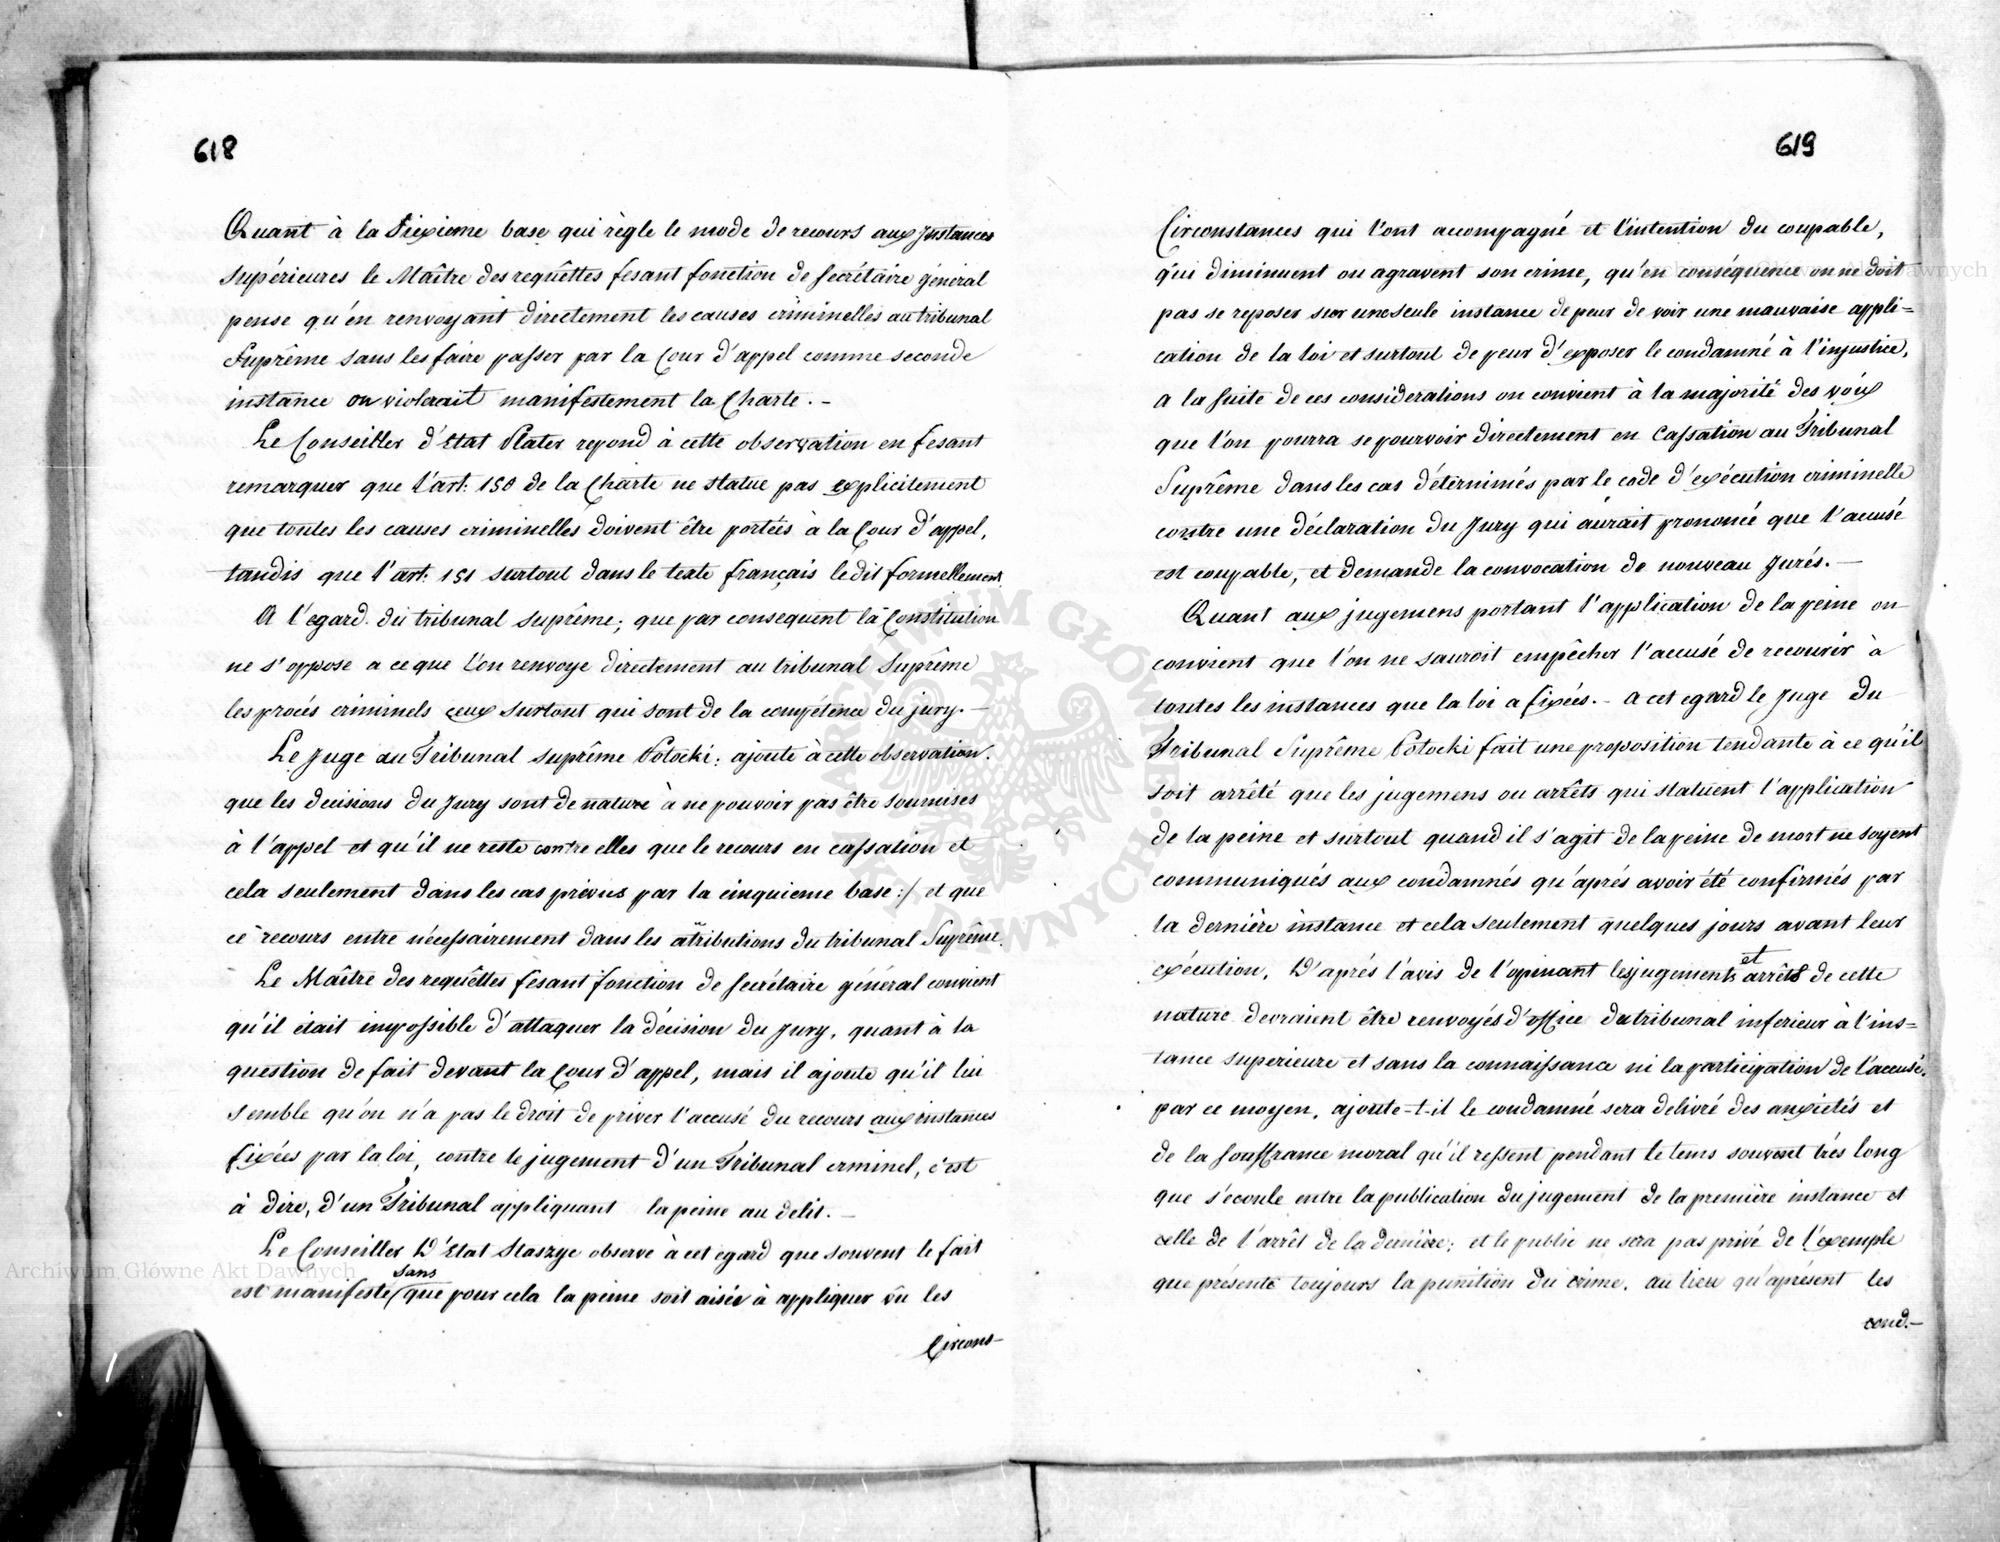 618
Quant à la Sixieme base qui règle le mode de recours aux Instances
supérieures le Maître des requêttes fesant fonction de Secrétaire général
pense qu'en renvoyant directement les causes criminelles au tribunal
Suprême sans les faire passer par la Cour d'appel comme seconde
instance on violerait manifestement la Charte. -
Le Conseiller d'Etat Plater repond à cette observation en fesant
remarquer que l'art: 150 de la Charte ne statue pas explicitement
que toutes les causes criminelles doivent être portées à la Cour d'appel,
tandis que l'art: 151 surtout dans le texte français le dit formellement
A l'egard du tribunal suprême; que par consequent la Constitution
ne s'oppose a ce que l'on renvoye directement au tribunal Suprême
les procés criminels ceux surtout qui sont de la compétence du jury. -
Le Juge du Tribunal suprême Potocki: ajoute à cette observation.
que les decisions du Jury sont de nature à ne pouvoir pas être soumises
à l'appel et qu'il ne reste contre elles que le recours en cassation et
cela seulement dans les cas prévus par la cinquieme base :/ et que
ce recours entre nécessairement dans les attributions du tribunal Suprême.
Le Maître des requêttes fesant fonction de Secrétaire général convient
qu'il était impossible d'attaquer la décision du Jury, quant à la
question de fait devant la Cour d'appel, mais il ajoute qu'il lui
semble qu'on n'a pas le droit de priver l'accusé du recours aux instances
fixées par la loi, contre le jugement d'un Tribunal criminel, c'est
à dire, d'un Tribunal appliquant la peine au delit. -
Le Conseiller D'Etat Staszyc observe à cet egard que souvent le fait
sans
est manifeste que pour cela la peine soit aisée à appliquer vû les
Circons-
619
Circonstances qui l'ont accompagné et l'intention du coupable,
qui diminuent ou agravent son crime, qu'en conséquence on ne doit
pas se reposer sur une seule instance de peur de voir une mauvaise appli=
cation de la loi et surtout de peur d'exposer le condamné à l'injustice,
a la suite de ces considerations on convient à la majorité des voix
que l'on pourra se pourvoir directement en Cassation au Tribunal
Suprême dans les cas déterminés par le code d'exécution criminelle
contre une déclaration du Jury qui aurait prononcé que l'accusé
est coupable, et demande la convocation de nouveau Jurés. -
Quant aux jugemens portant l'application de la peine on
convient que l'on ne sauroit empêcher l'accusé de recourir à
toutes les instances que la loi a fixées. - a cet egard le Juge du
Tribunal Suprême Potocki fait une proposition tendante à ce qu'il
soit arrêté que les jugemens ou arrêts qui statuent l'application
de la peine et surtout quand il s'agit de la peine de mort ne soyent
communiqués aux condamnés qu'aprés avoir été confirmés par
la dernière instance et cela seulement quelques jours avant leur
et
exécution. D'aprés l'avis de l'opinant les jugements arrêts de cette
nature devraient être renvoyés d'office du tribunal inferieur à l'ins=
tance superieure et sans la connaissance ni la participation de l'accusé.
par ce moyen, ajoute-t-il le condamné sera delivré des anxietés et
de la souffrance moral qu'il ressent pendant le tems souvent trés long
que s'ecoule entre la publication du jugement de la première instance et
celle de l'arrêt de la dernière; et le public ne sera pas privé de l'exemple
que présente toujours la punition du crime. au lieu qu'aprésent les
cond.-
Archiwum Główne Akt Dawnych